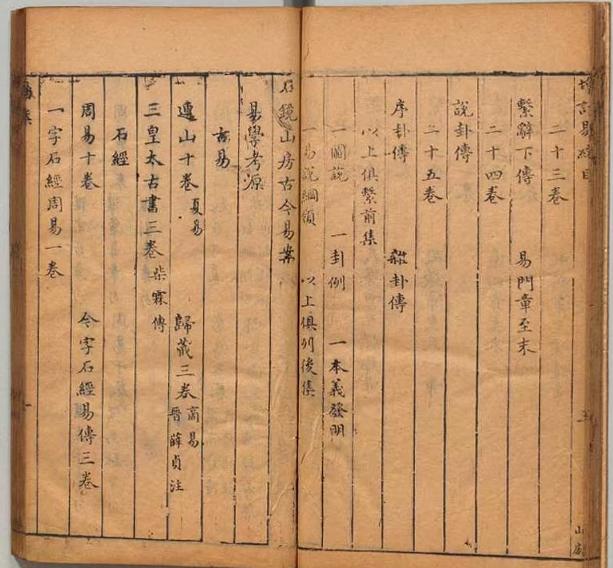 二十三卷
繫辭下傳 易門章至末
二十四卷
說卦傳
二十五卷
序卦傳 雜卦傳
以上俱繫前集
一圖說 一卦例 一本義發明
一易說綱領 以上俱列後集
石鏡山房古今易案
易學考源
古易
連山十卷 夏易 歸藏三卷 商易 晉薛貞注
三皇太古書三卷 柴霖傳
石經
周易十卷 今字石經易傳三卷
一字石經周易一卷